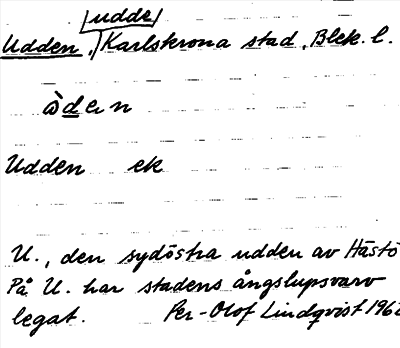 /udde/
Udden, Karlskrona stad, Blek. l.
ὼden
Udden ek
U., den sydöstra udden av Hästö
På U. har stadens ångslupsvarv
legat. Per-Olof Lindqvist